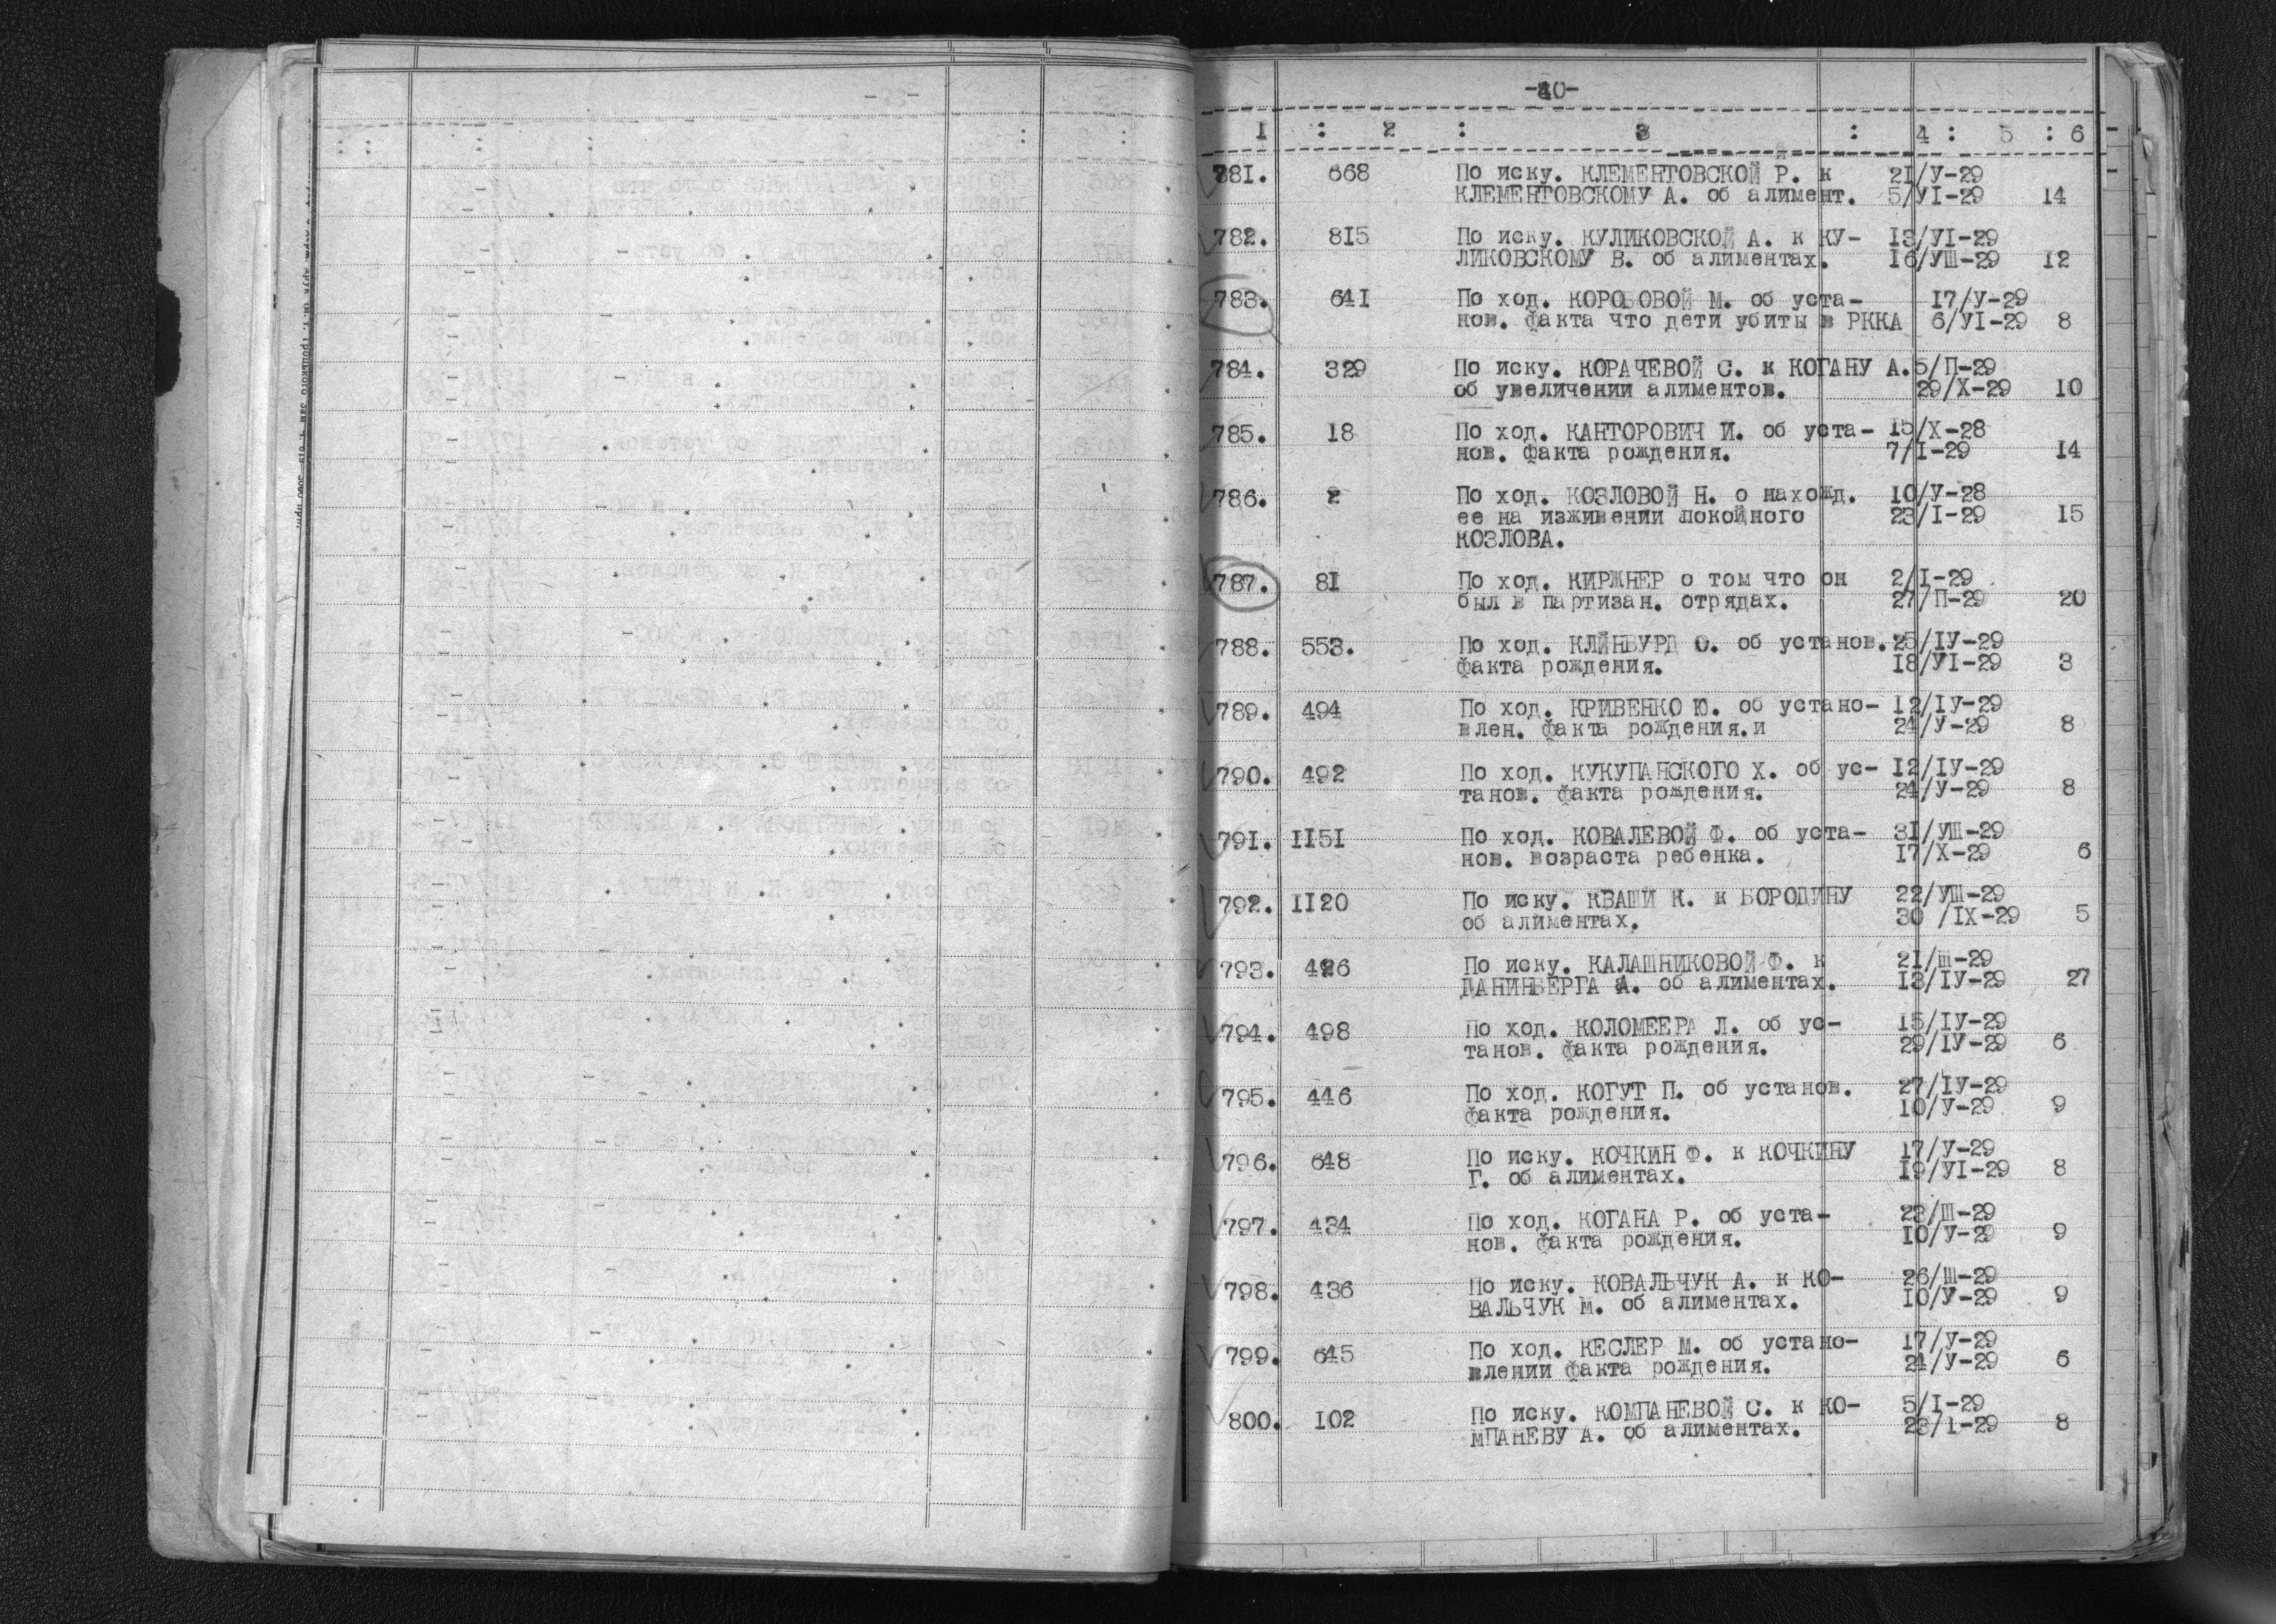 -40-
1 : 2 : 3 : 4 : 5 : 6
781. 668 По иску. КЛЕМЕНТОВСКОЙ Р. к 21/У-29
КЛЕМЕНТОВСКОМУ А. об алимент. 5/УI-29 14
782. 815 По иску. КУЛИКОВСКОЙ А. к КУ- 13/УI-29
ЛИКОВСКОМУ В. об алиментах. 16/УШ-29 12
783. 641 По ход. КОРОБОВОЙ М. об уста- 17/У-29
нов. факта что дети убиты в РККА 6/УI-29 8
784. 329 По иску. КОРАЧЕВОЙ С. к КОГАНУ А. 5/П-29
об увеличении алиментов. 29/Х-29 10
785. 18 По ход. КАНТОРОВИЧ И. об уста- 15/Х-28
нов. факта рождения. 7/I-29 14
786. 2 По ход. КОЗЛОВОЙ Н. о нахожд. 10/У-28
ее на изживении покойного 23/I-29 15
КОЗЛОВА.
787. 81 По ход. КИРЖНЕР о том что он 2/I-29
был в партизан. отрядах. 27/П-29 20
788. 553. По ход. КЛЙНБУРД О. об установ. 25/IУ-29
факта рождения. 18/УI-29 3
789. 494 По ход. КРИВЕНКО Ю. об устано- 12/IУ-29
влен. факта рождения.и 24/У-29 8
790. 492 По ход. КУКУПАНСКОГО Х. об ус- 12/IУ-29
танов. факта рождения. 24/У-29 8
791. 1151 По ход. КОВАЛЕВОЙ Ф. об уста- 31/УШ-29
нов. возраста ребенка. 17/Х-29 6
792. 1120 По иску. КВАШИ К. к БОРОДИНУ 22/УШ-29
об алиментах. 30 /IХ-29 5
793. 426 По иску. КАЛАШНИКОВОЙ Ф. к 21/Ш-29
ДАНИНБЕРГА А. об алиментах. 13/IУ-29 27
794. 498 По ход. КОЛОМЕЕРА Л. об ус- 15/IУ-29
танов. факта рождения. 29/IУ-29 6
795. 446 По ход. КОГУТ П. об установ. 27/IУ-29
факта рождения. 10/У-29 9
796. 648 По иску. КОЧКИН Ф. к КОЧКИНУ 17/У-29
Г. об алиментах. 19/УI-29 8
797. 434 По ход. КОГАНА Р. об уста- 23/Ш-29
нов. факта рождения. 10/У-29 9
798. 436 По иску. КОВАЛЬЧУК А. к КО- 26/Ш-29
ВАЛЬЧУК М. об алиментах. 10/У-29 9
799. 645 По ход. КЕСЛЕР М. об устано- 17/У-29
влении факта рождения. 24/У-29 6
800. 102 По иску. КОМПАНЕВОЙ С. к КО- 5/I-29
МПАНЕВУ А. об алиментах. 23/1-29 8